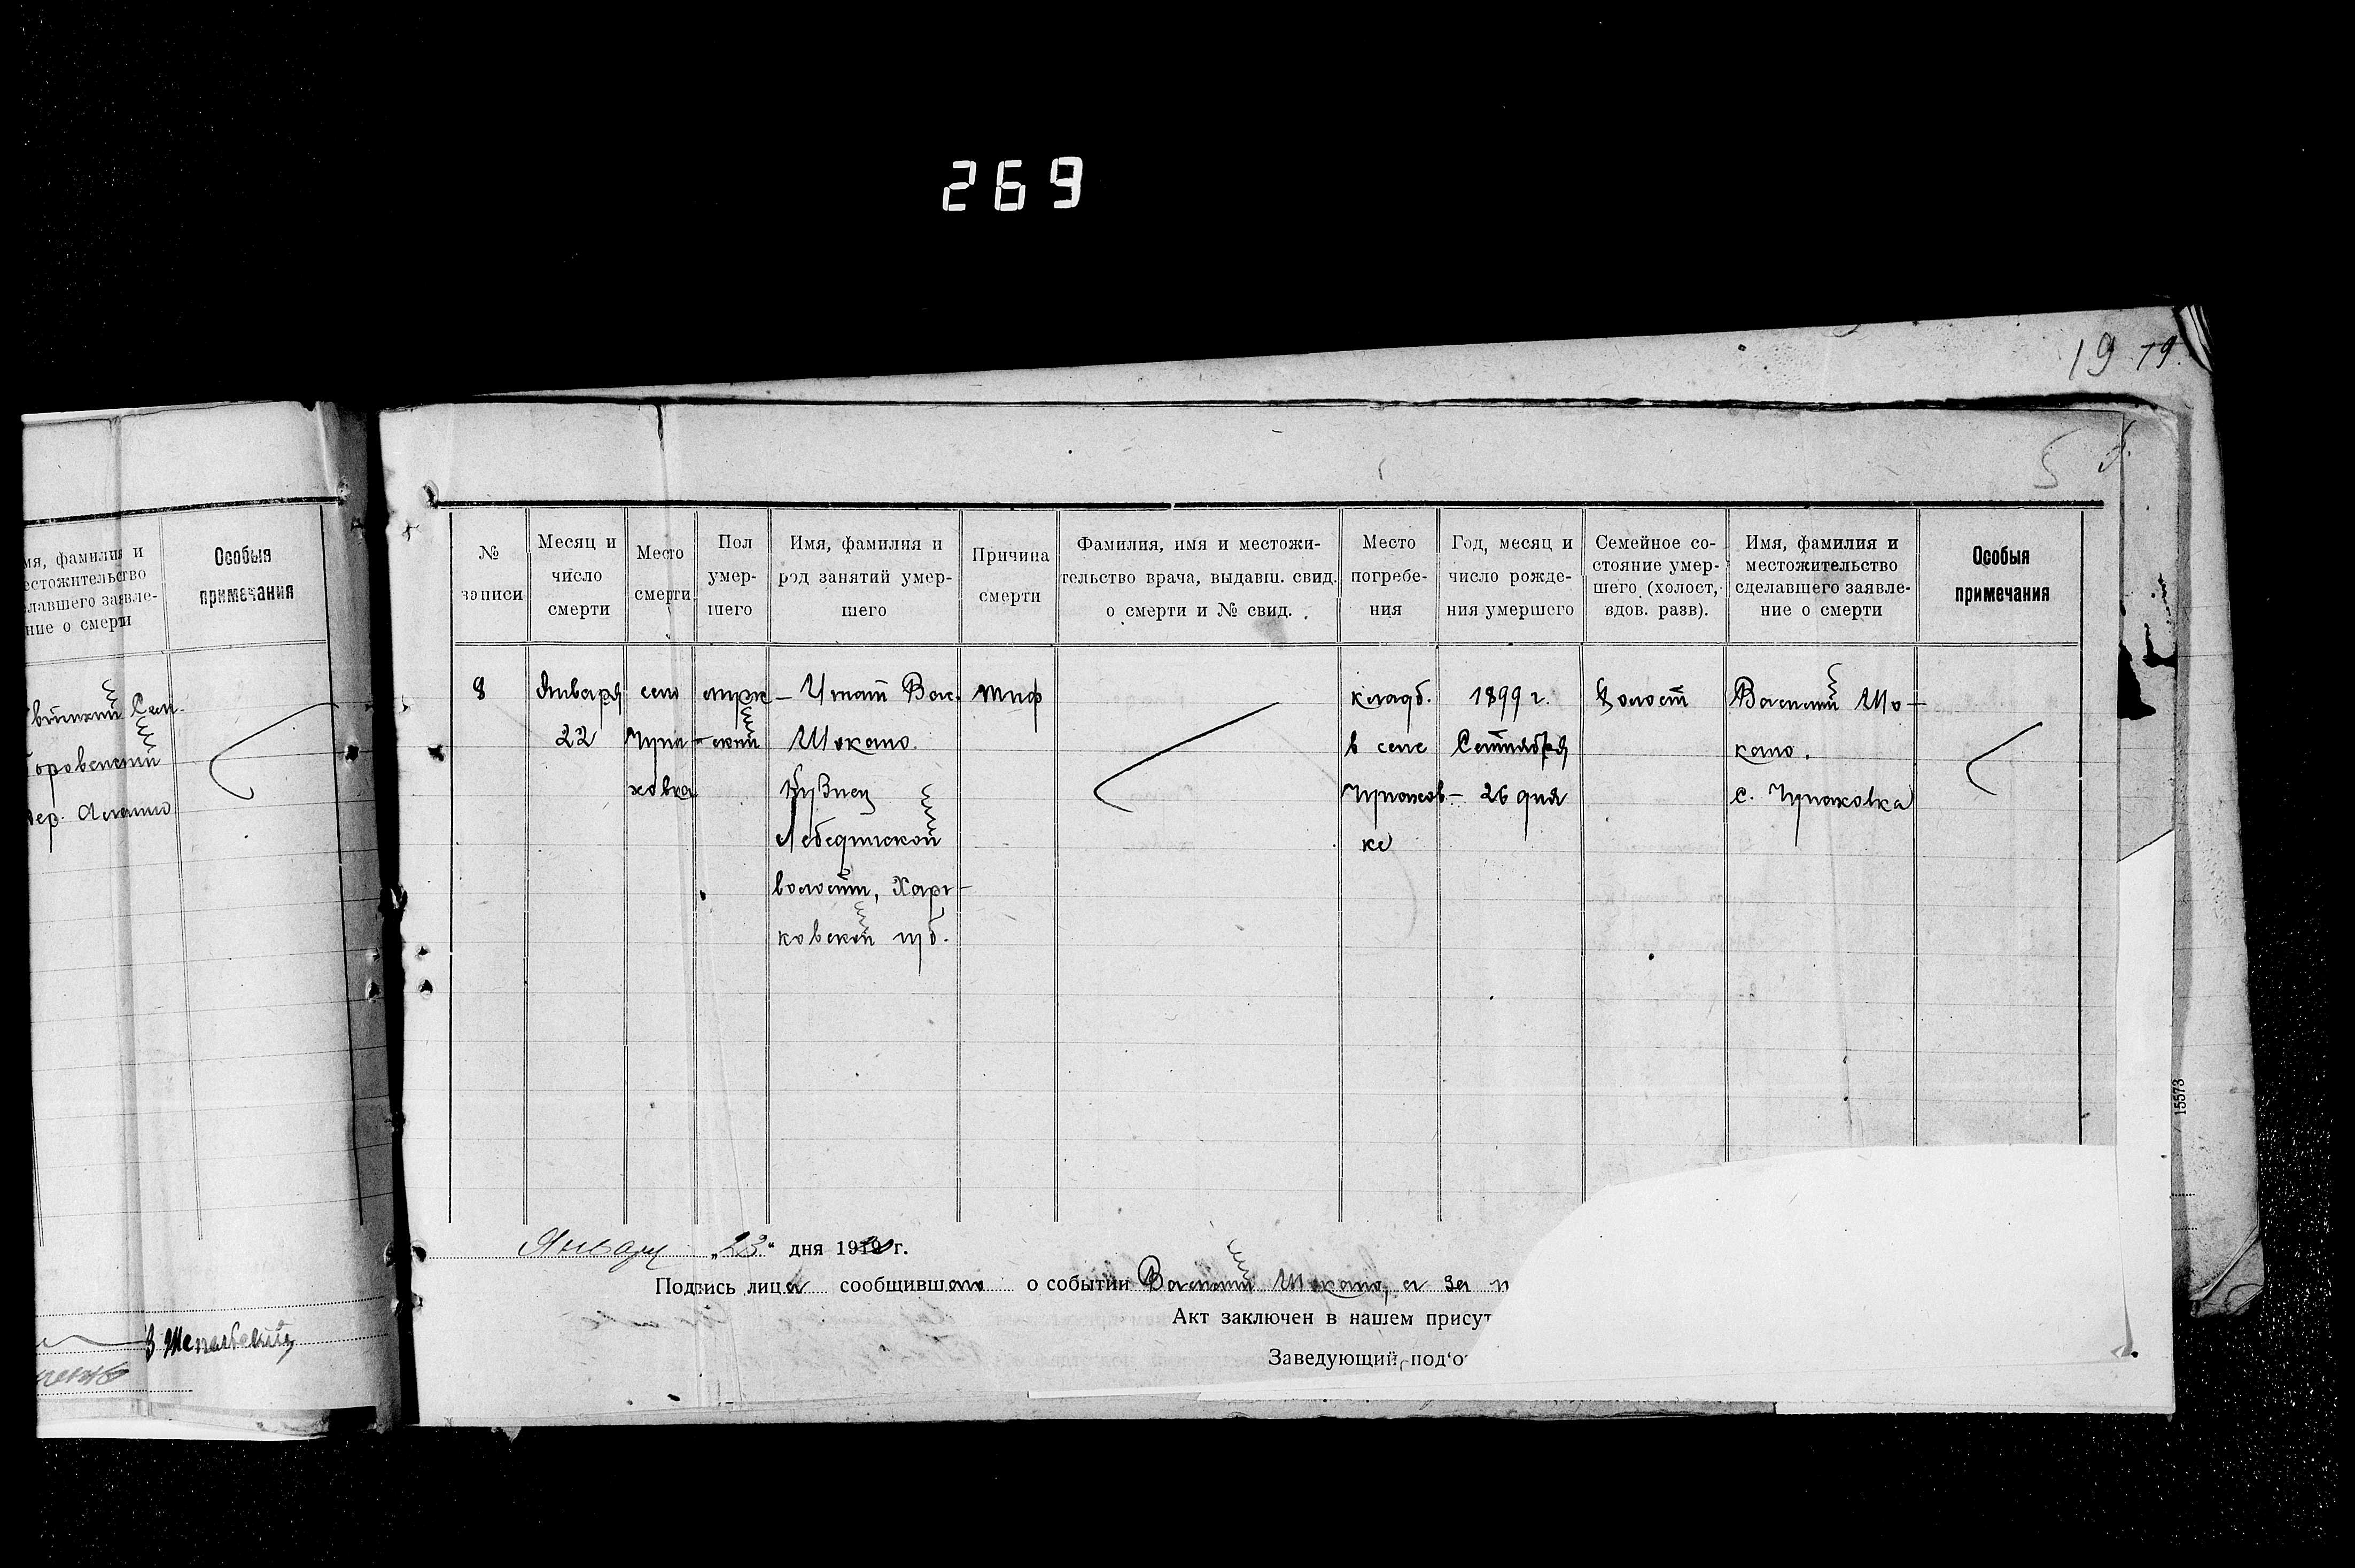 269
19 19.
5
мя, фамилия и
естожительство
лавшего заявле-
ние о смерти
Особыя
примечания
оровский
дер.
№
записи
Месяц и
число
смерти
Место
смерти
Пол
умер-
шего
Имя, фамилия и
род занятий умер-
шего
Причина
смерти
Фамилия, имя и местожи-
тельство врача, выдавш. свид.
о смерти и № свид.
Место
погребе-
ния
Год, месяц и
число рожде-
ния умершего
Семейное со-
стояние умер-
шего (холост,
вдов. разв).
Имя, фамилия и
местожительство
сделавшего заявле-
ние о смерти
Особыя
примечания
8
Января
22
село
ховка
мужс-
ской
Игнат Вас.
Шокало.
Кузнец
Лебединской
волости, Харь-
ковской губ.
тиф
кладб.
в селе
ке
1899 г.
Сентября
26 дня
Холост
Василий Шо-
кало.
с.
Января „23“ дня 19 г.
Подпись лица сообщившаго о событии Василий Шокало, а за
Акт заключен в нашем присут
Заведующий под‘о
15573